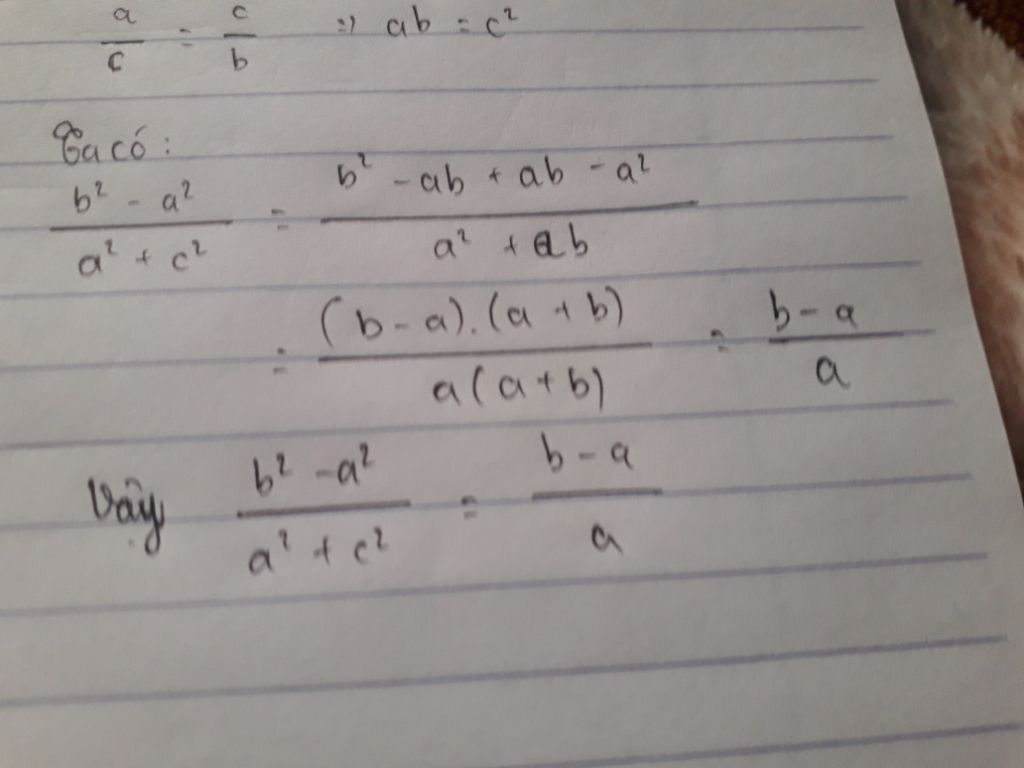 a/c = c/b => ab = c²
Ta có:
(b² - a²)/(a² + c²) = (b² - ab + ab - a²)/(a² + ab)
= ((b - a).(a + b))/(a(a + b)) = (b - a)/a
Vậy (b² - a²)/(a² + c²) = (b - a)/a